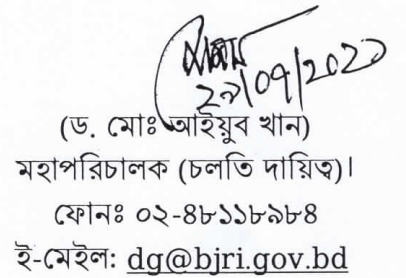 (ড. মোঃ আইয়ুব খান)
মহাপরিচালক (চলতি দায়িত্ব)।
ফোনঃ ০২-৪৮১১৮৯৮৪
ই-মেইল: dg@bjri.gov.bd